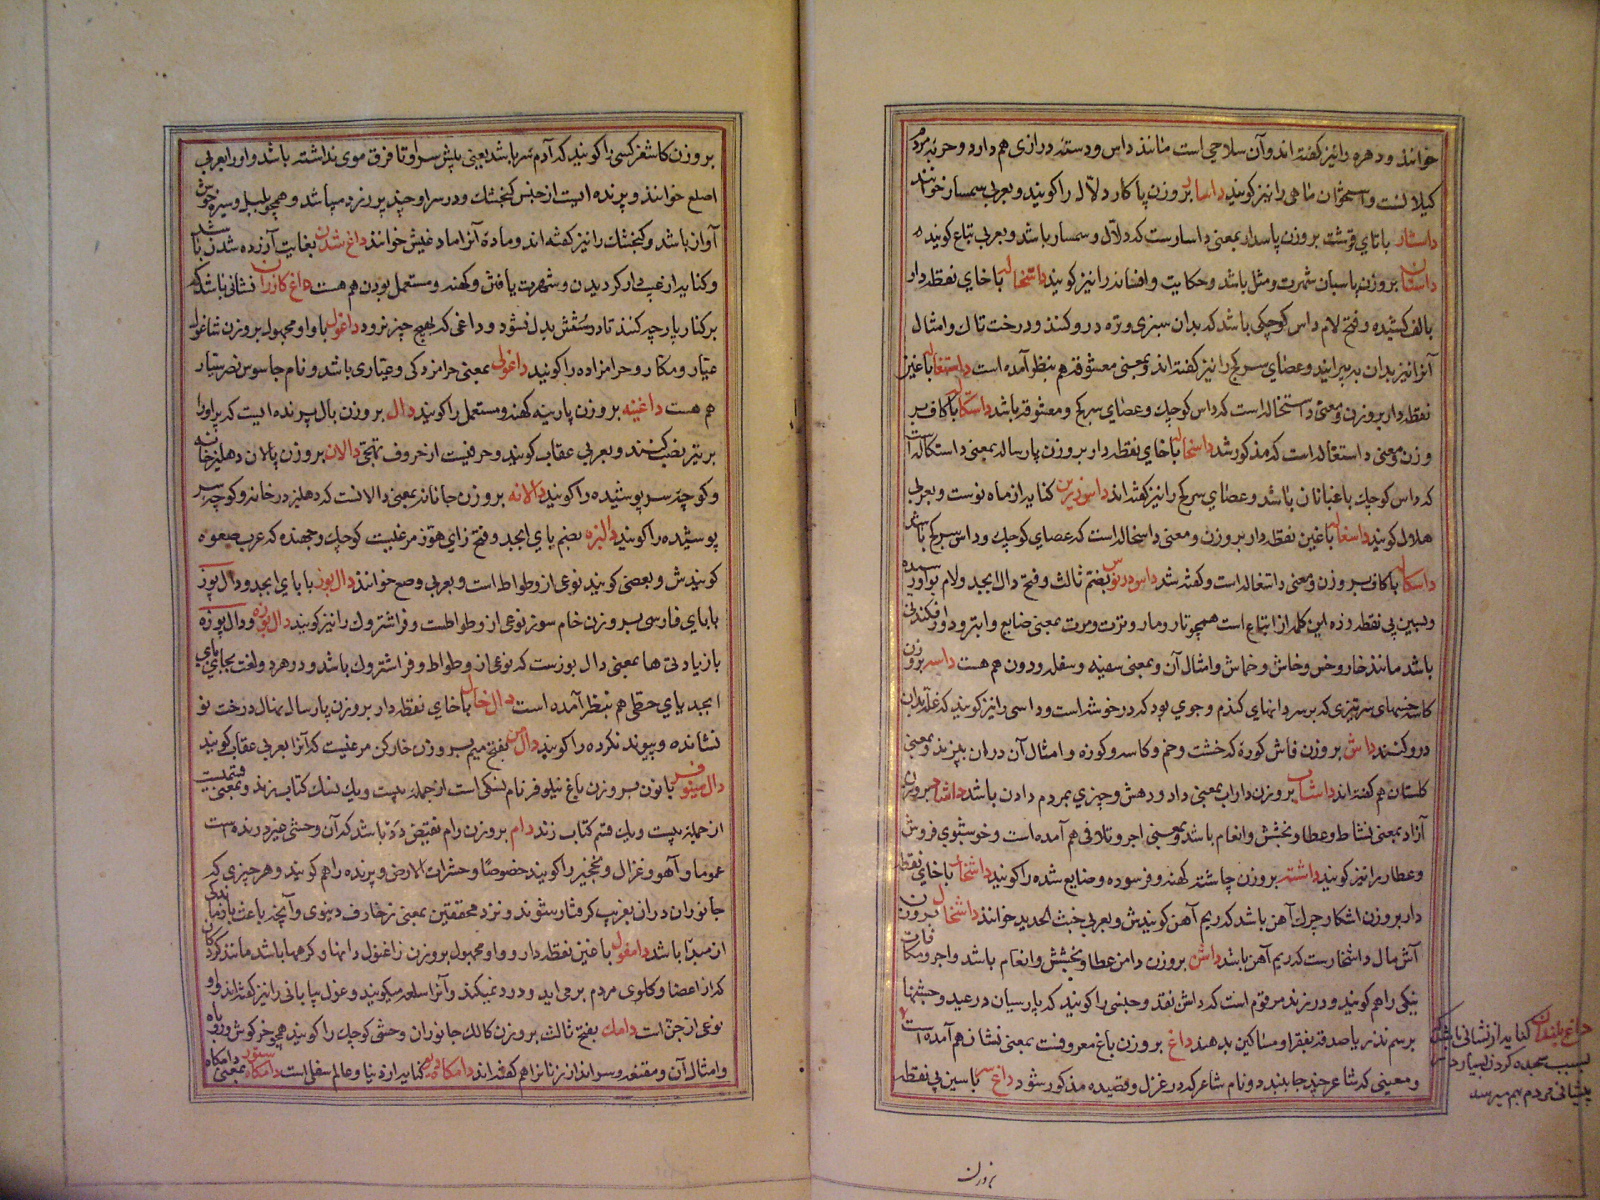 خوانند و دهره را نیز گفته‌اند و آن سلاحی است مانند داس و دسته درازی هم دارد و حربه مردم
کیلانست و استخوان ماهی را نیز کویند داسار بر وزن پاکار دلال را کویند و بعربی سمسار خوانند
داستار با تای قرشت بر وزن پاسدار بمعنی داسارست که دلال و سمسار باشد و بعربی بیاع کویند
داستان بر وزن پاسبان شهرت و مثل باشد و حکایت و افسانه را نیز کویند داستخاله با خای نقطه دار
بالف کشیده و فتح لام داس کوچکی باشد که بدان سبزی و تره درو کنند و درخت تاک و امثال
آنرا نیز بدان به پیرایند و عصای سر کج را نیز کفته اند و بمعنی معشوقه هم بنظر آمده است داستغاله با غین
نقطه دار بر وزن و معنی داستخاله است که داس کوچک و عصای سر کج و معشوقه باشد داستکاله با کاف بر
وزن و معنی داستغاله است که مذکور شد داسخاله با خای نقطه دار بر وزن پارساله بمعنی داستکاله است
که داس کوچک باغبانان باشد و عصای سر کج را نیز کفته اند داس زرین کنایه از ماه نوست و بعربی
هلال کویند داسغاله با غین نقطه دار بر وزن و معنی داسخاله است که عصای کوچک و داس سر کج باشد
داسکاله با کاف بر وزن و معنی داسغاله است و کفته شد داس و دلوس بفتح ثالث و فتح دال ابجد و لام بواو رسیده
و بسین بی نقطه زده این کلمه از اتباع است همچو تار و مار و ترت و مرت بمعنی ضایع و ابتر و دور افکندنی
باشد مانند خار و خس و خاش و خماش و امثال آن و بمعنی سفیه و سفله و دون هم هست داسه بر وزن
کاسه خسهای سر تیزی که بر سر دانهای کندم و جوی بود که در خوشه است و داسی را نیز کویند که غله بدان
درو کنند داش بر وزن فاش کوره که خشت و خم و کاسه و کوزه و امثال آن در آن بپزند و بمعنی
کلستان هم کفته اند داشاب بر وزن داراب بمعنی داد و دهش و چیزی بمردم دادن باشد داشاد بر وزن
آزاد بمعنی نشاط و عطا و بخشش و انعام باشد و بمعنی اجر و تلافی هم آمده است و خوشبوی فروش
و عطار را نیز کویند داشته بر وزن چاشته کهنه و فرسوده و ضایع شده را کویند داشخار با خای نقطه
دار بر وزن اشکار چرک آهن باشد که ریم آهن کویندش و بعربی خبث الحدید خوانند داشخال بر وزن
آش مال داشخارست که ریم آهن باشد داشن بر وزن دامن عطا و بخشش و انعام باشد و اجر و مکافات
نیکی را هم کویند و در زند مرقوم است که داش نقد و جنسی را کویند که پارسیان در عید و جشنها
برسم نذر یا صدقه بفقرا و مساکین بدهند داغ بر وزن باغ معروفست بمعنی نشان هم آمده است
و معینی که شاعر چند جا بندد و نام شاعر که در غزل و قصیده مذکور شود داغ سر با سین بی نقطه
داغ بلندان کنایه از نشانی باشد که
بسبب سجده کردن بسیار در
پیشانی مردم بهم میرسد
بر وزن
بر وزن کاشغر کسی را کویند که آدم سر باشد یعنی پیش سر او تا فرق موی نداشته باشد و او را بعربی
اصلع خوانند و پرنده ایست از جنس کنجشک و در سر او چند پر زرد میباشد و همچو بلبل و سیره خوش
آواز باشد و کنجشک را نیز کفته اند و ماده آنرا ماده غیش خوانند داغ شدن بغایت آزرده شدن باشد
و کنایه از عیب دار کردیدن و شهرت یافتن و کهنه و مستعمل بودن هم هست داغ کازران نشانی باشد که
بر کنار پارچه کنند تا در شستن بدل نشود و داغی که بهیچ چیز نرود داغول با واو مجهول بر وزن شاغول
عیار و مکار و حرامزاده را کویند داغولی بمعنی حرامزدکی و عیاری باشد و نام جاسوس نصر سیار
هم هست داغینه بر وزن پارینه کهنه و مستعمل را کویند دال بر وزن بال پرنده ایست که پر او را
بر تیر نصب کنند و بعربی عقاب کویند و حرفیست از حروف تهجی دالان بر وزن پالان دهلیز خانه
و کوچه سر پوشیده را کویند دالانه بر وزن جانانه بمعنی دالانست که دهلیز در خانه و کوچه سر
پوشیده را کویند دالبزه بضم بای ابجد و فتح زای هوز مرغیست کوچک و جهنده که عرب صعوه
کویندش و بعضی کویند نوعی از وطواط است و بعربی وصع خوانند دال بوز با بای ابجد و دال پوز
با بای فارسی بر وزن خام سوز نوعی از وطواطست و فراشتروک را نیز کویند دال بوزه و دال پوزه
با زیادتی ها بمعنی دال بوزست که نوعی از وطواط و فراشتروک باشد و در هر دو لغت بجای بای
ابجد یای حطی هم بنظر آمده است دال خال با خای نقطه دار بر وزن پارسال نهال درخت نو
نشانده و پیوند نکرده را کویند دالمن بفتح میم بر وزن خارکن مرغیست که آنرا بعربی عقاب کویند
دال مینوفر با نون بر وزن باغ نیلوفر نام نسکی است از جمله بیست و یک نسک کتاب زند و بمعنی قسمیست
از جمله بیست و یک قسم کتاب زند دام بر وزن رام نقیض دد باشد که آن وحشی غیر درنده است
عموما و آهو و غزال و نخجیر را کویند خصوصا و حشرات الارض و پرنده را هم کویند و هر چیزی که
جانوران در آن بفریب کرفتار شوند و نزد محققین بمعنی زخارف دنیوی و آنچه باعث بازماندکی
از مبدأ باشد دامغول با غین نقطه دار و واو مجهول بر وزن زاغنول دانها و کرهها باشد مانند کردکان
که از اعضا و کلوی مردم بر می اید و درد نمیکند و آنرا سلعه میکویند و غول بیابانی را نیز کفته اند و
نوعی از جن است دامک بفتح ثالث بر وزن کالک جانوران وحشی کوچک را کویند همچو خرکوش و روباه
و امثال آن و مقنعه و سرانداز زنانرا هم کفته اند دامکاه دیو کنایه از دنیا و عالم سفلی است دامکاه ستور دامکاه بمعنی